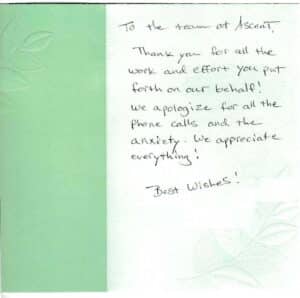 To the team at Ascent,
Thank you for all the
work and effort you put
forth on our behalf!
We apologize for all the
phone calls and the
anxiety. We appreciate
everything!
Best Wishes!